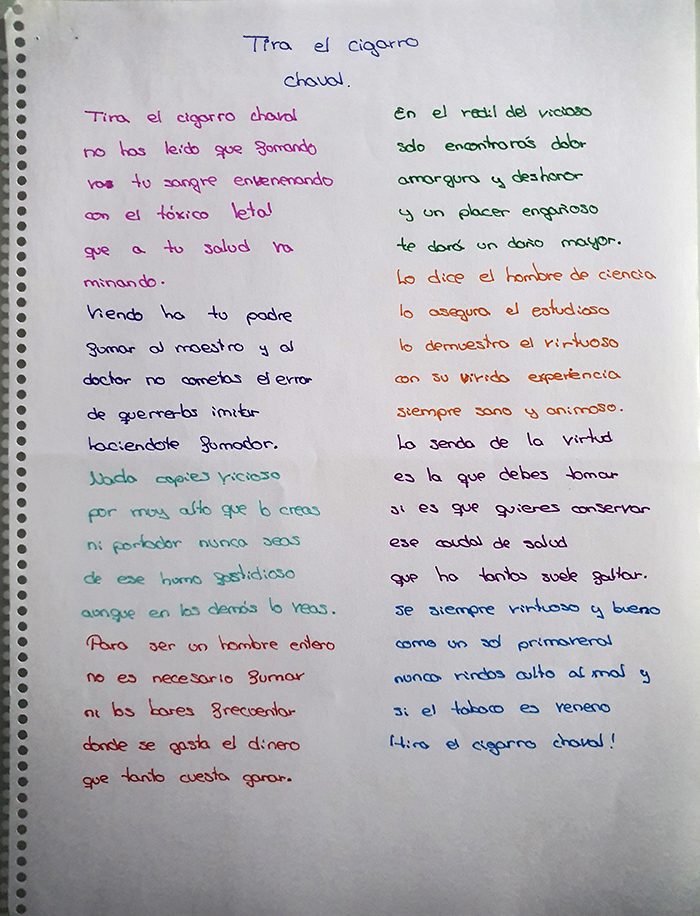 Tira el cigarro
chaval.
Tira el cigarro chaval
no has leido que fumando
vas tu sangre envenenando
con el tóxico letal
que a tu salud va
minando.
Viendo ha tu padre
fumar al maestro y al
doctor no cometas el error
de querrerlos imitar
haciendote fumador.
Nada copies vicioso
por muy alto que lo creas
ni portador nunca seas
de ese humo fastidioso
aunque en los demás lo veas.
Para ser un hombre entero
no es necesario fumar
ni los bares frecuentar
donde se gasta el dinero
que tanto cuesta ganar.
En el redil del vicioso
solo encontrarás dolor
amargura y deshonor
y un placer engañoso
te dará un daño mayor.
Lo dice el hombre de ciencia
lo asegura el estudioso
lo demuestra el virtuoso
con su vivida experiencia
siempre sano y animoso.
La senda de la virtud
es la que debes tomar
si es que quieres conservar
ese caudal de salud
que ha tantos suele faltar.
se siempre virtuoso y bueno
como un sol primaveral
nunca rindas culto al mal y
si el tabaco es veneno
¡tira el cigarro chaval!